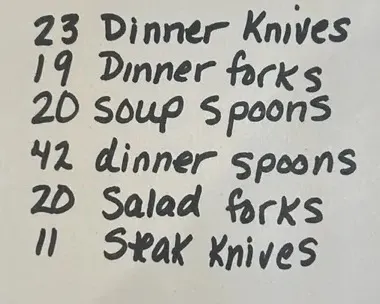 23 Dinner Knives
19 Dinner forks
20 soup spoons
42 dinner spoons
20 Salad forks
11 Steak Knives